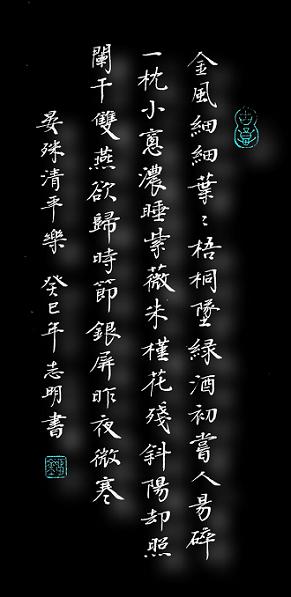 金風細細葉〻梧桐墜綠酒初嘗人易碎
一枕小窻濃睡紫薇朱槿花殘斜陽却照
闌干雙燕欲歸時節銀屏昨夜微寒
晏殊清平樂 癸巳年 志明書